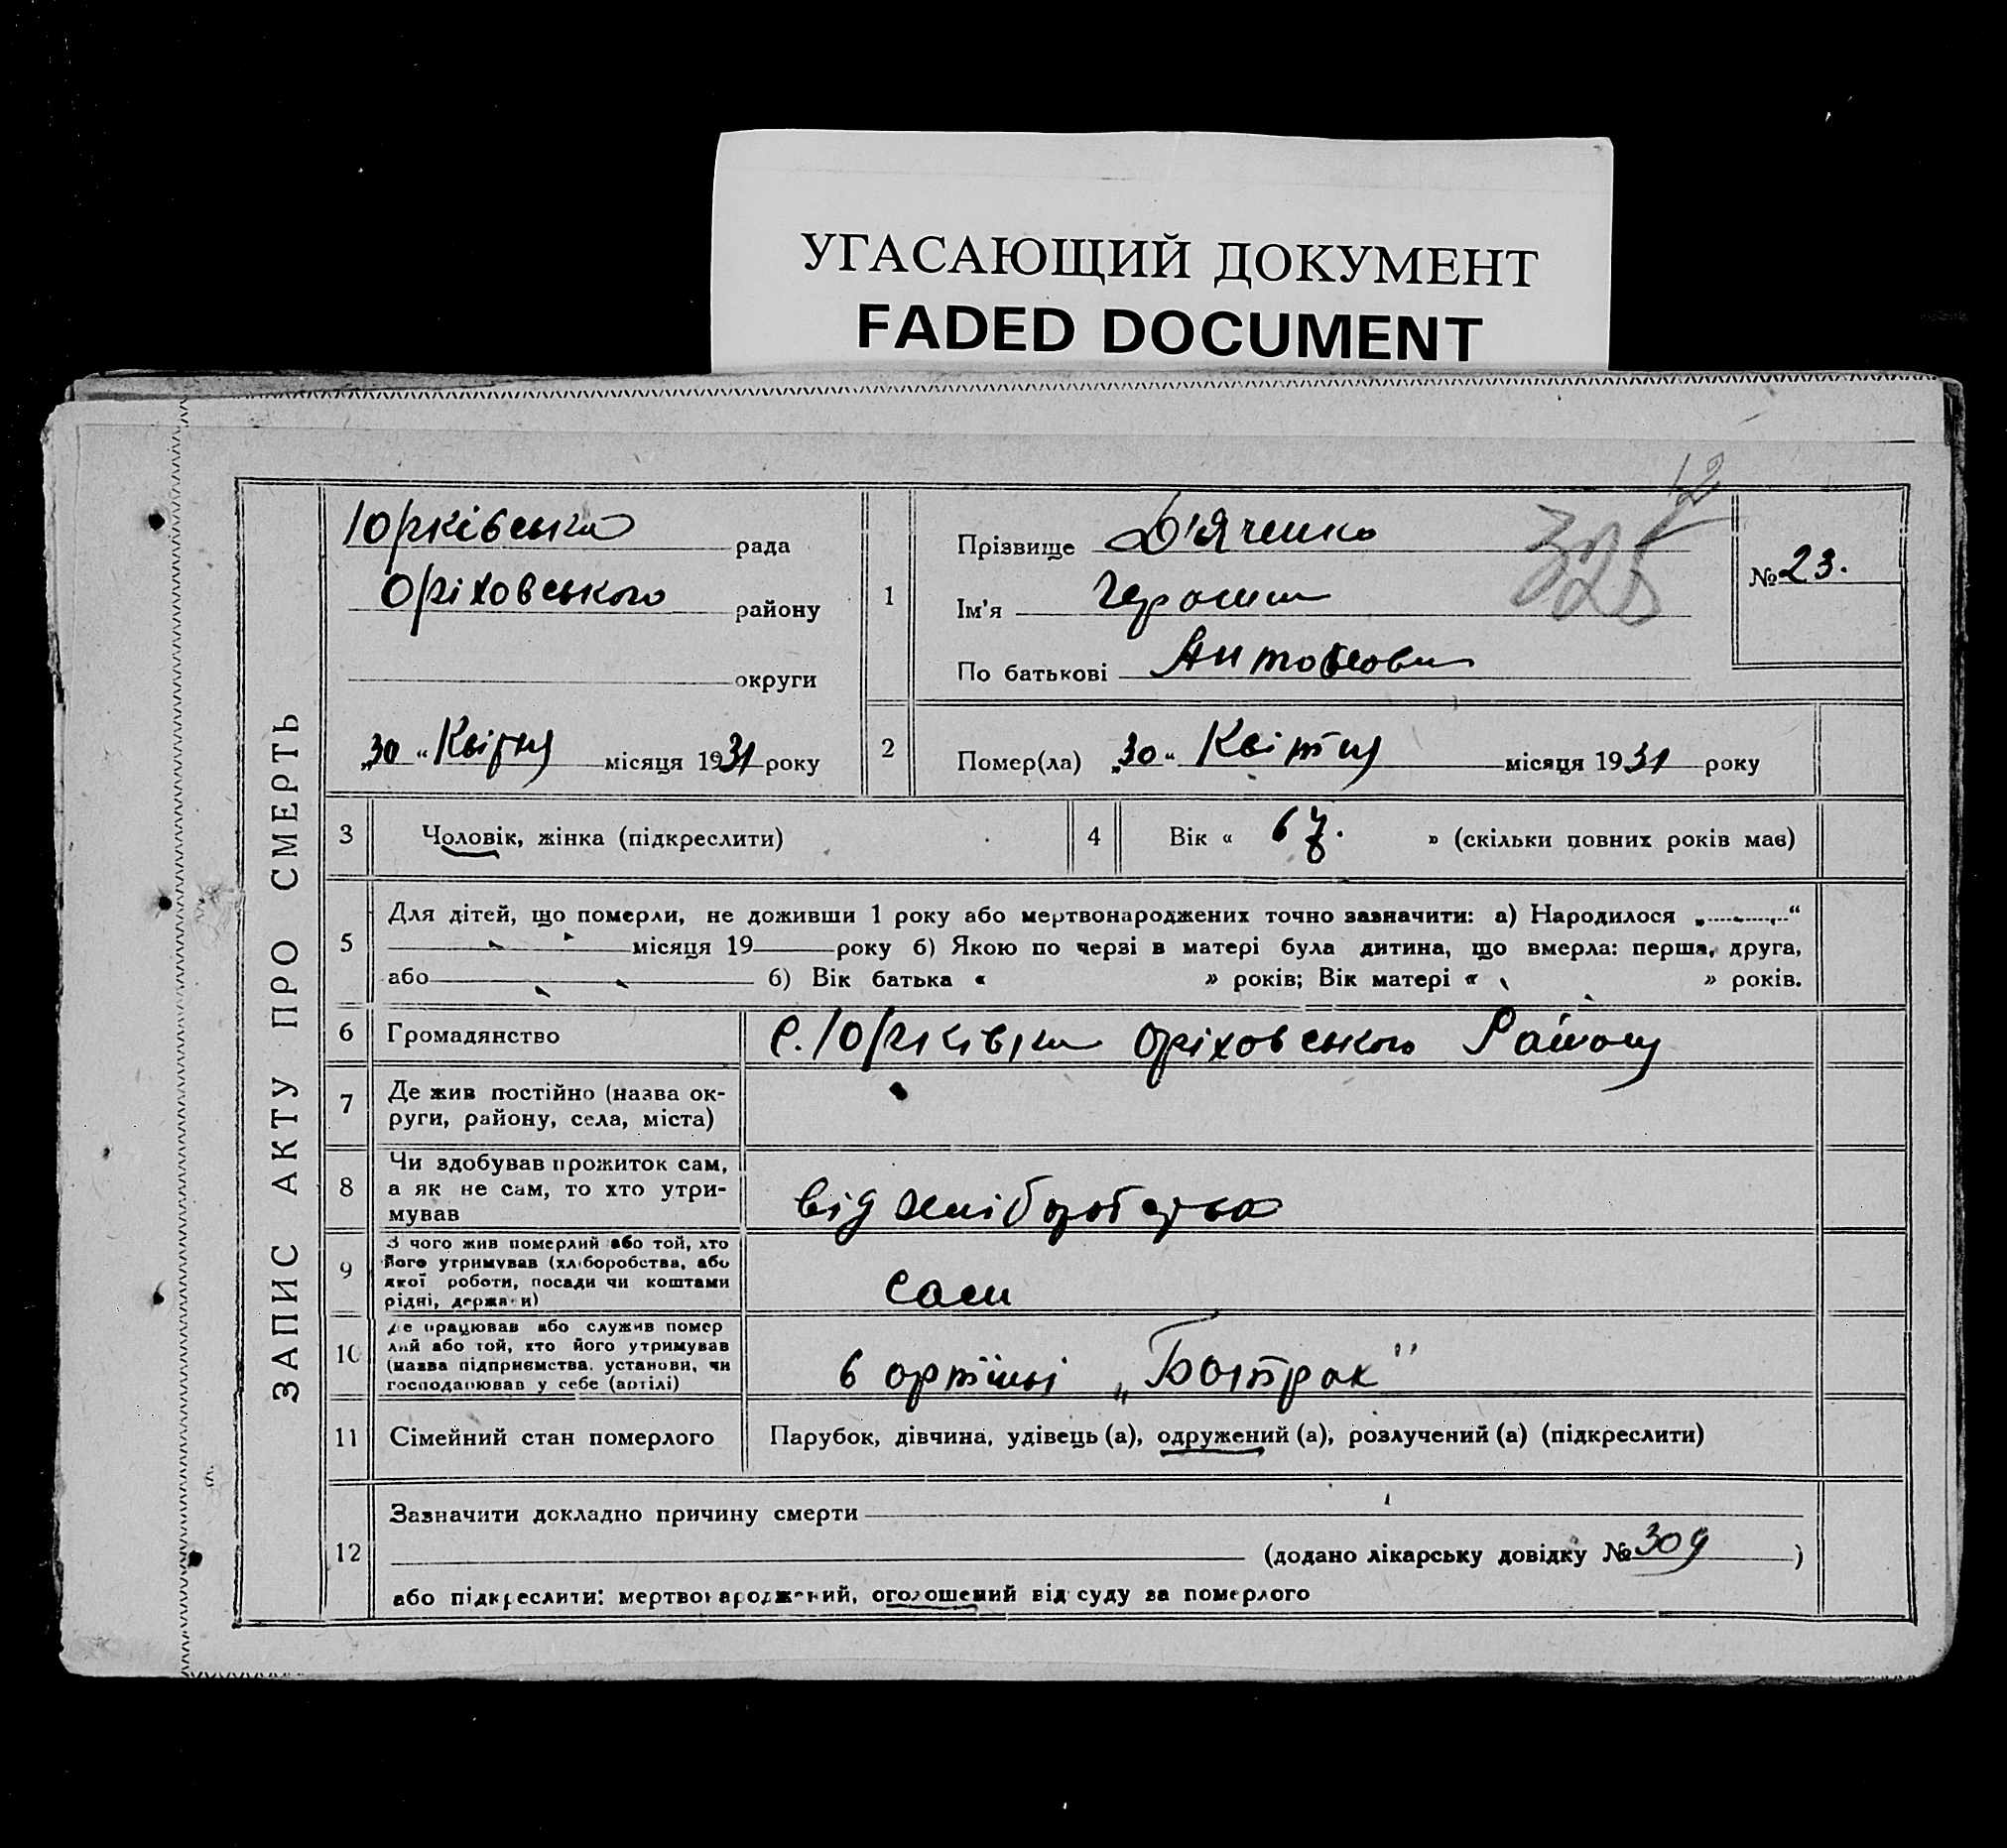 УГАСАЮЩИЙ ДОКУМЕНТ
FADED DOCUMENT
ЗАПИС АКТУ ПРО СМЕРТЬ
Юрківська рада
Оріховського району
округи
„30“ Квітня місяця 1931 року
1
Прізвище Д'яченко
Ім'я
По батькові Антонович
12
325
№ 23.
2
Помер(ла) „30“ Квітня місяця 1931 року
3 Чоловік, жінка (підкреслити)
4 Вік « 67. » (скільки повних років має)
5 Для дітей, що померли, не доживши 1 року або мертвонароджених точно зазначити: а) Народилося „ “
місяця 19 року б) Якою по черзі в матері була дитина, що вмерла: перша, друга,
або б) Вік батька « » років; Вік матері « » років.
6 Громадянство с. Юрківка Оріховського Району
7 Де жив постійно (назва ок-
руги, району, села, міста)
8 Чи здобував прожиток сам,
а як не сам, то хто утри-
мував
від хліборобства
9 З чого жив померлий або той, хто
його утримував (хліборобства, або
якої роботи, посади чи коштами
рідні, держави)
сам
10 Де працював або служив помер
лий або той, хто його утримував
(назва підприємства, установи, чи
господарював у себе (артілі)
в артілі „Батрак"
11 Сімейний стан померлого Парубок, дівчина, удівець (а), одружений (а), розлучений (а) (підкреслити)
12 Зазначити докладно причину смерти
(додано лікарську довідку № 309 )
або підкреслити: мертвонароджений, оголошений від суду за померлого